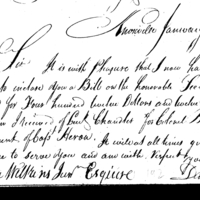 Knoxville January
Sir
It is with Pleasure that I now ha
to inclose you a Bill on the Honorable Sec
for Four hundred twelve Dollars and twelve
I received of Lieut Chandler for Colonel
ment of Capt
It will at all times g
to serve you and am with Perfect
Wilkins Junr Esquire